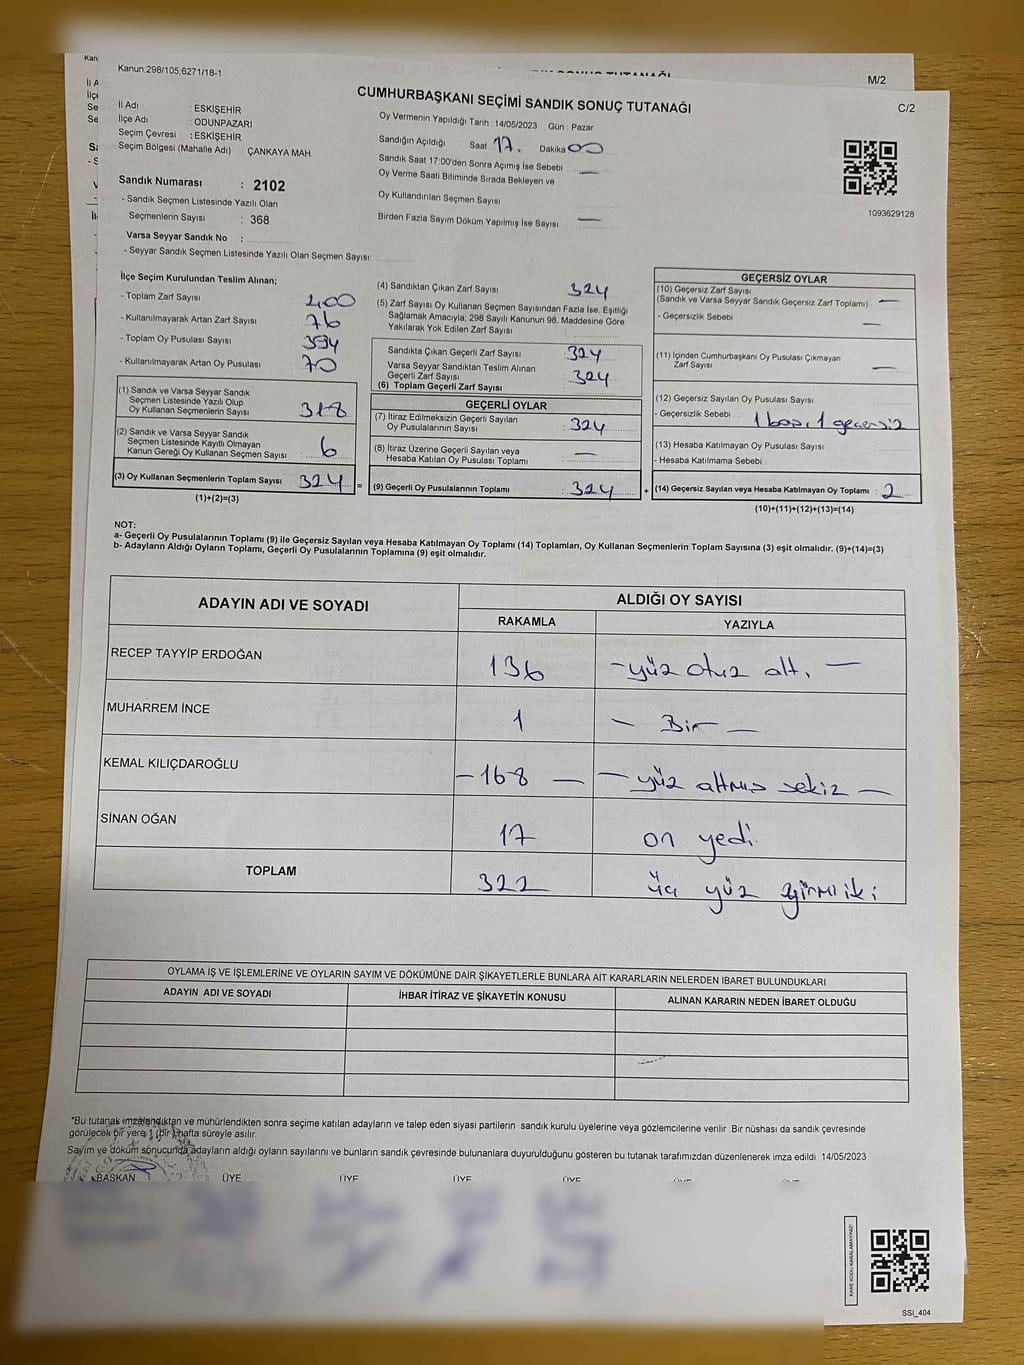 Kanun:298/105;6271/18-1
M/2
CUMHURBAŞKANI SEÇİMİ SANDIK SONUÇ TUTANAĞI
C/2
İl Adı : ESKİŞEHİR
İlçe Adı : ODUNPAZARI
Seçim Çevresi : ESKİŞEHİR
Seçim Bölgesi (Mahalle Adı) : ÇANKAYA MAH.
Oy Vermenin Yapıldığı Tarih :14/05/2023 Gün : Pazar
Sandığın Açıldığı Saat 17. Dakika 00
Sandık Saat 17:00'den Sonra Açımış İse Sebebi : —
Oy Verme Saati Bitiminde Sırada Bekleyen ve
Oy Kullandırılan Seçmen Sayısı
Birden Fazla Sayım Döküm Yapılmış İse Sayısı —
1093629128
Sandık Numarası : 2102
- Sandık Seçmen Listesinde Yazılı Olan
Seçmenlerin Sayısı : 368
Varsa Seyyar Sandık No :
- Seyyar Sandık Seçmen Listesinde Yazılı Olan Seçmen Sayısı:
İlçe Seçim Kurulundan Teslim Alınan;
- Toplam Zarf Sayısı 400
- Kullanılmayarak Artan Zarf Sayısı 76
- Toplam Oy Pusulası Sayısı 394
- Kullanılmayarak Artan Oy Pusulası 70
(1) Sandık ve Varsa Seyyar Sandık
Seçmen Listesinde Yazılı Olup
Oy Kullanan Seçmenlerin Sayısı 318
(2) Sandık ve Varsa Seyyar Sandık
Seçmen Listesinde Kayıtlı Olmayan
Kanun Gereği Oy Kullanan Seçmen Sayısı 6
(3) Oy Kullanan Seçmenlerin Toplam Sayısı 324 =
(1)+(2)=(3)
(4) Sandıktan Çıkan Zarf Sayısı 324
(5) Zarf Sayısı Oy Kullanan Seçmen Sayısından Fazla İse, Eşitliği
Sağlamak Amacıyla; 298 Sayılı Kanunun 98. Maddesine Göre
Yakılarak Yok Edilen Zarf Sayısı
Sandıkta Çıkan Geçerli Zarf Sayısı 324
Varsa Seyyar Sandıktan Teslim Alınan
Geçerli Zarf Sayısı 324
(6) Toplam Geçerli Zarf Sayısı
GEÇERLİ OYLAR
(7) İtiraz Edilmeksizin Geçerli Sayılan
Oy Pusulalarının Sayısı 324
(8) İtiraz Üzerine Geçerli Sayılan veya
Hesaba Katılan Oy Pusulası Toplamı —
(9) Geçerli Oy Pusulalarının Toplamı 324 +
GEÇERSİZ OYLAR
(10) Geçersiz Zarf Sayısı
(Sandık ve Varsa Seyyar Sandık Geçersiz Zarf Toplamı) —
- Geçersizlik Sebebi —
(11) İçinden Cumhurbaşkanı Oy Pusulası Çıkmayan
Zarf Sayısı —
(12) Geçersiz Sayılan Oy Pusulası Sayısı
- Geçersizlik Sebebi : 1 boş, 1 geçersiz
(13) Hesaba Katılmayan Oy Pusulası Sayısı
- Hesaba Katılmama Sebebi
(14) Geçersiz Sayılan veya Hesaba Katılmayan Oy Toplamı : 2
(10)+(11)+(12)+(13)=(14)
NOT:
a- Geçerli Oy Pusulalarının Toplamı (9) ile Geçersiz Sayılan veya Hesaba Katılmayan Oy Toplamı (14) Toplamları, Oy Kullanan Seçmenlerin Toplam Sayısına (3) eşit olmalıdır. (9)+(14)=(3)
b- Adayların Aldığı Oyların Toplamı, Geçerli Oy Pusulalarının Toplamına (9) eşit olmalıdır.
ADAYIN ADI VE SOYADI
ALDIĞI OY SAYISI
RAKAMLA YAZIYLA
RECEP TAYYİP ERDOĞAN 136 - yüz otuz altı —
MUHARREM İNCE 1 — Bir —
KEMAL KILIÇDAROĞLU — 168 — — yüz altmış sekiz —
SİNAN OĞAN 17 on yedi
TOPLAM 322 üç yüz yirmi iki
OYLAMA İŞ VE İŞLEMLERİNE VE OYLARIN SAYIM VE DÖKÜMÜNE DAİR ŞİKAYETLERLE BUNLARA AİT KARARLARIN NELERDEN İBARET BULUNDUKLARI
ADAYIN ADI VE SOYADI İHBAR İTİRAZ VE ŞİKAYETİN KONUSU ALINAN KARARIN NEDEN İBARET OLDUĞU
*Bu tutanak imzalandıktan ve mühürlendikten sonra seçime katılan adayların ve talep eden siyasi partilerin sandık kurulu üyelerine veya gözlemcilerine verilir. Bir nüshası da sandık çevresinde
görülecek bir yere 1 (bir) hafta süreyle asılır.
Sayım ve döküm sonucunda adayların aldığı oyların sayılarını ve bunların sandık çevresinde bulunanlara duyurulduğunu gösteren bu tutanak tarafımızdan düzenlenerek imza edildi. 14/05/2023
BAŞKAN ÜYE ÜYE ÜYE ÜYE ÜYE ÜYE
KARE KODU KARALAMAYINIZ!
SSI_404